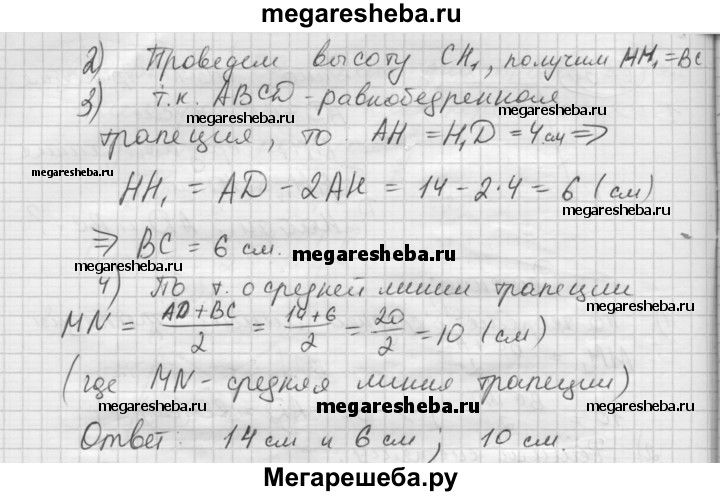 megaresheba.ru
2) Проведем высоту CH₁, получим HH₁ = BC
3) т.к. ABCD - равнобедренная
megaresheba.ru megaresheba.ru
трапеция, то AH = H₁D = 4 см ⇒
megaresheba.ru
HH₁ = AD - 2AH = 14 - 2·4 = 6 (см)
megaresheba.ru
⇒ BC = 6 см.
megaresheba.ru
megaresheba.ru
4) По т. о средней линии трапеции
MN = (AD+BC)/2 = (14+6)/2 = 20/2 = 10 (см)
megaresheba.ru
(где MN - средняя линия трапеции)
megaresheba.ru megaresheba.ru megaresheba.ru
Ответ: 14 см и 6 см; 10 см.
Мегарешеба.ру